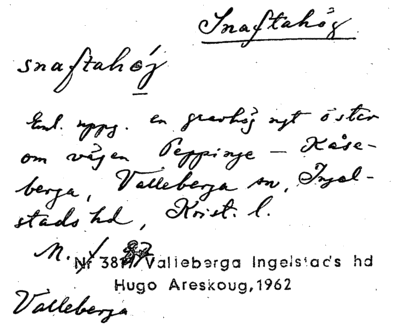 Snaftahög
snaftahög
Enl. uppg. en gravhög nyt öster
om vägen Peppinge – Kåse-
berga, Valleberga sn, Ingel-
stads hd, Krist. l.
M.
Nr Valleberga Ingelstads hd
Hugo Areskoug, 1962
Valleberga